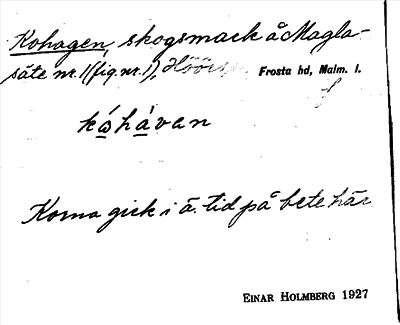 Kohagen, skogsmack å Magla-
säte nr. 1 (fig. nr. 1), Höörs Frosta hd, Malm. l.
kǻhàvan
Korna gick i ä. tid på bete här
EINAR HOLMBERG 1927